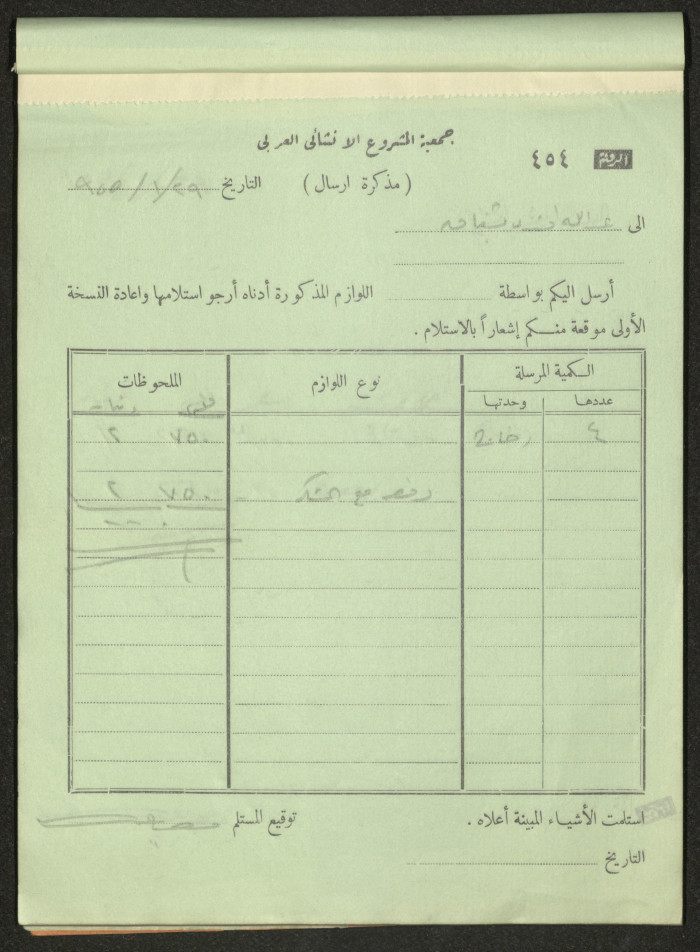 جمعية المشروع الانشائي العربي
الرقم ٤٥٤
( مذكرة ارسال )
التاريخ ٢٩/١/٩٥٥
الى عبدالله
أرسل اليكم بواسطة اللوازم المذكورة أدناه أرجو استلامها واعادة النسخة
الأولى موقعة منكم إشعاراً بالاستلام .
الكمية المرسلة نوع اللوازم الملحوظات
عددها وحدتها
٤ ٧٥٠ ٢
دفعت مع الشكر ٧٥٠ ٢
استلمت الأشياء المبينة أعلاه .
توقيع المستلم
التاريخ